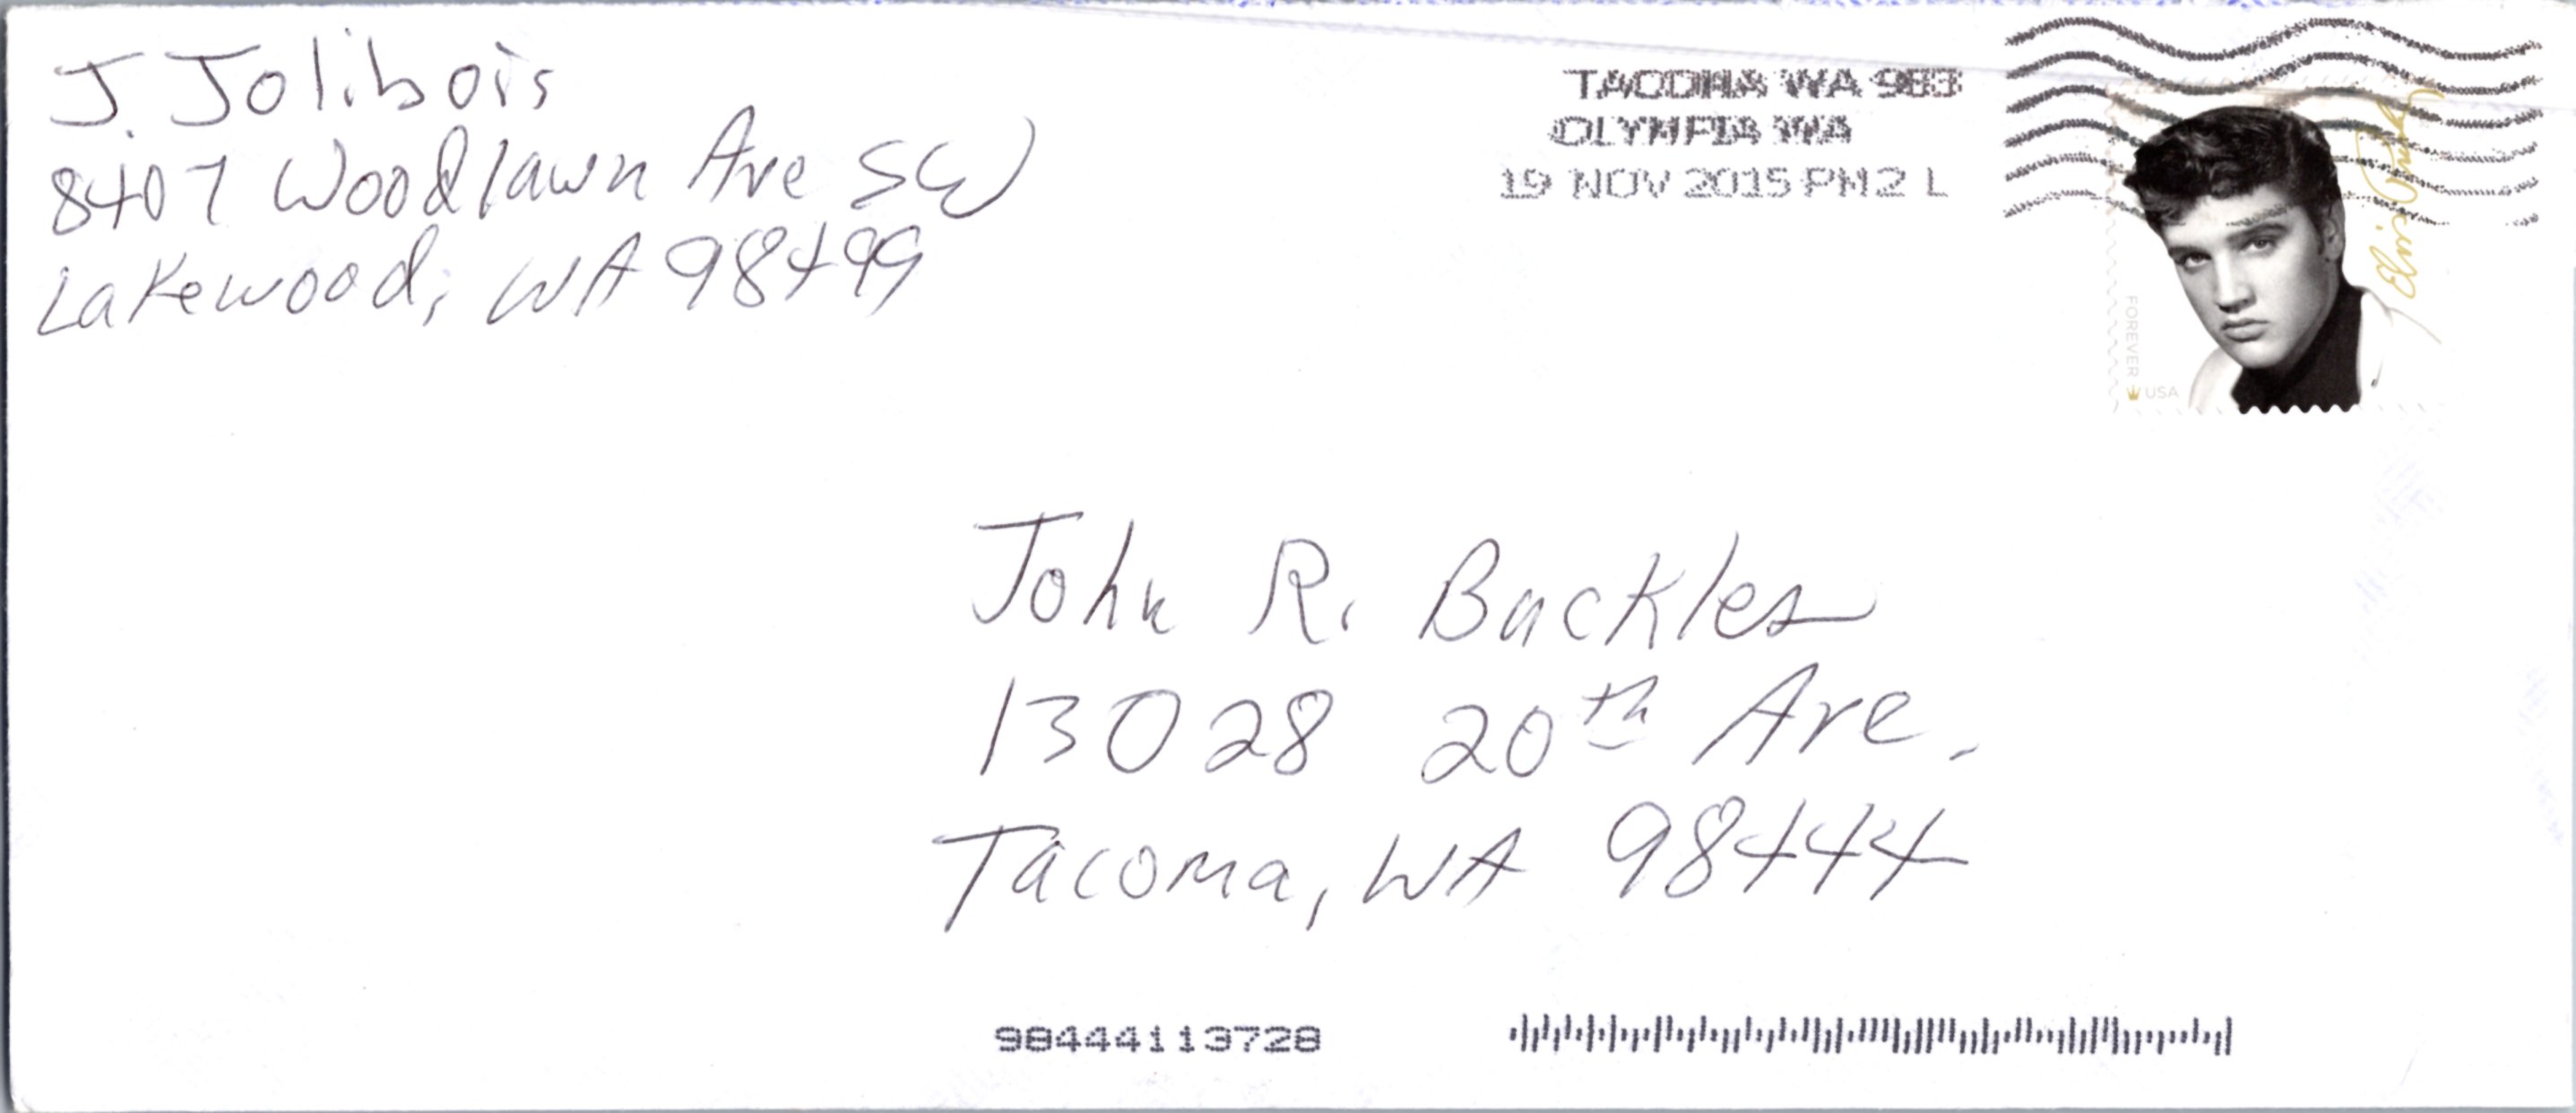 J. Jolibois
8407 Woodlawn Ave SW
Lakewood, WA 98499
TACOMA WA 983
OLYMPIA WA
19 NOV 2015 PM 2 L
Elvis Presley
FOREVER USA
John R. Buckles
13028 20th Ave.
Tacoma, WA 98444
98444113728